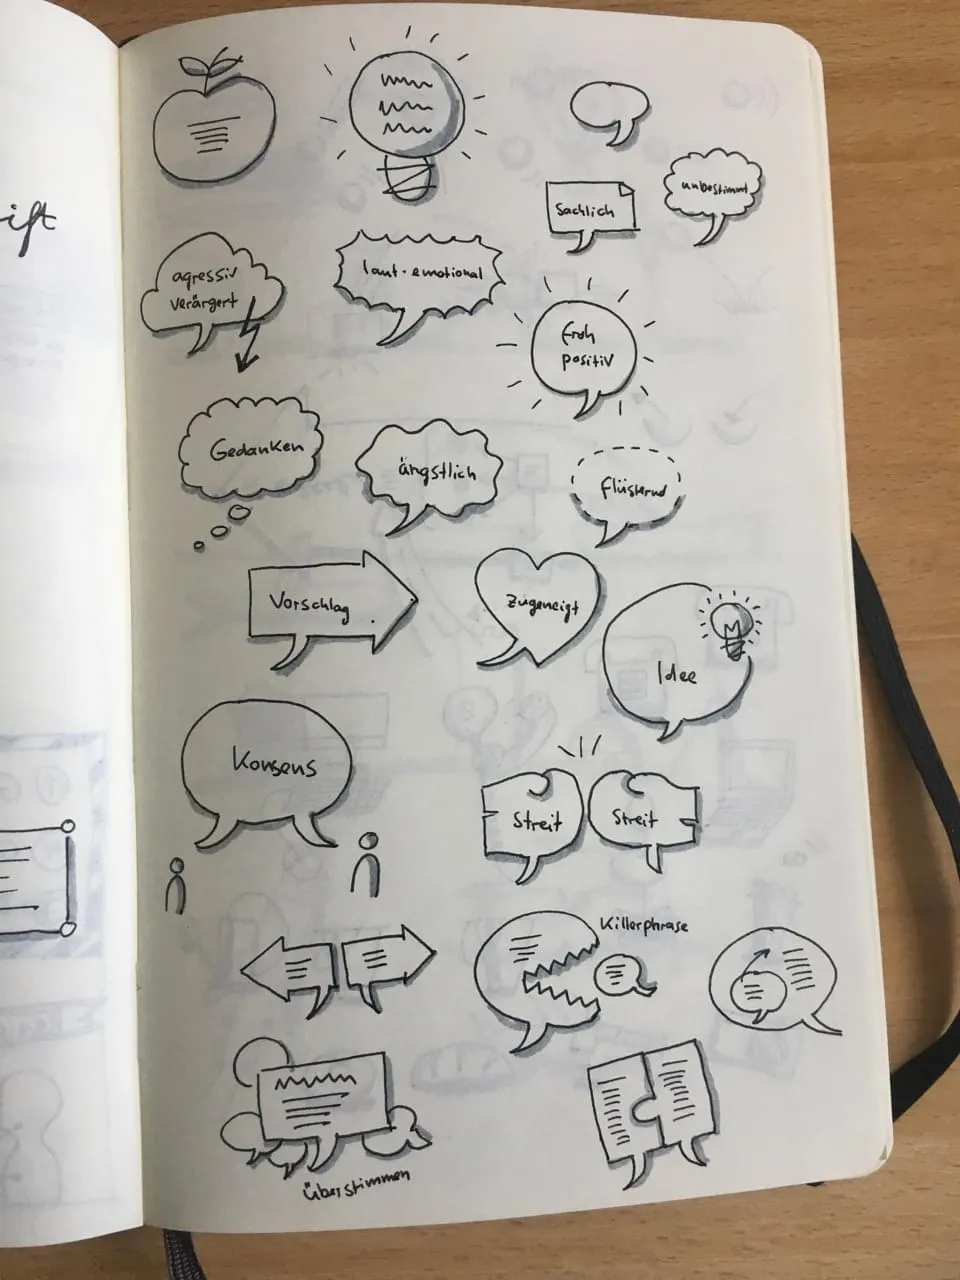 ift
Sachlich
unbestimmt
agressiv
verärgert
laut · emotional
froh
positiv
Gedanken
ängstlich
flüsternd
Vorschlag
Zugeneigt
Idee
Konsens
Streit
Streit
Killerphrase
Überstimmen